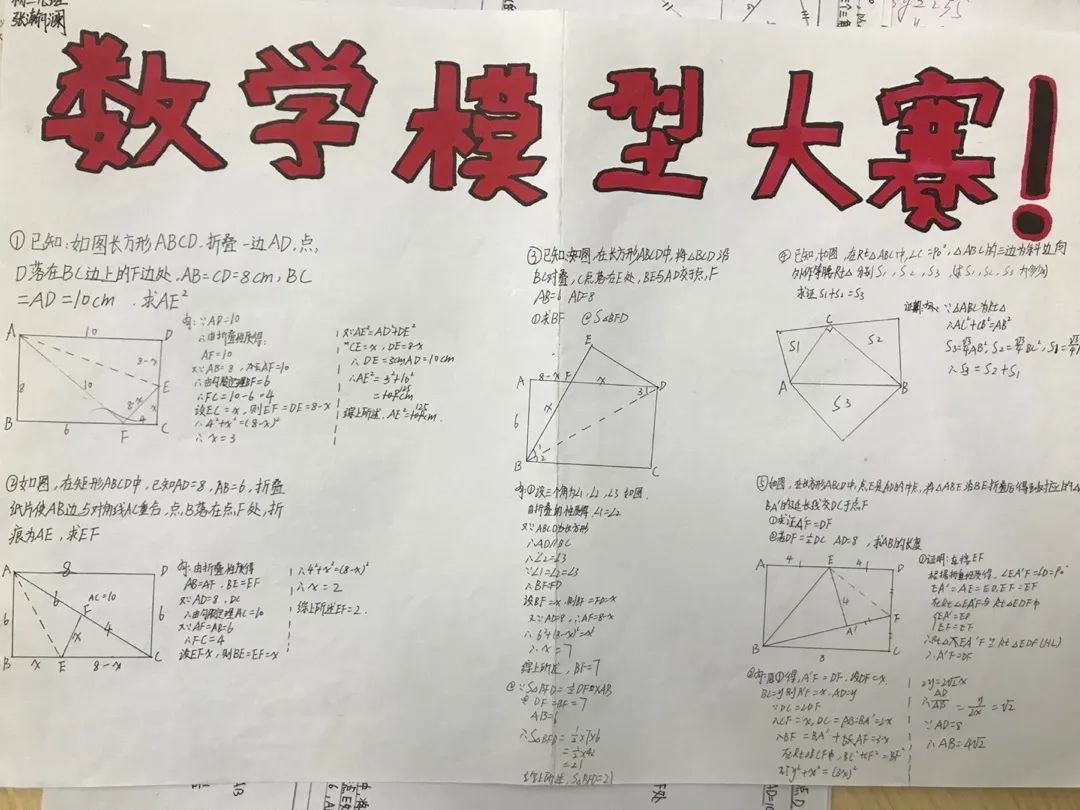 张瀚澜
数学模型大赛!
①已知:如图长方形ABCD.折叠一边AD,点
D落在BC边上的F边处,AB=CD=8cm,BC
=AD=10cm .求AE²
A
10
D
8-x
E
8
10
8-x
x
4
B
6
F
C
∵AD=10
∴由折叠性质得:
AF=10
又∵AB=8,
∴由勾股定理BF=6
∴FC=10-6=4
设EC=x,则EF=DE=8-x
∴4²+x²=(8-x)²
∴x=3
又∵AE²=AD²+DE²
CE=x,DE=8-x
∴AE²=3²+10²
②如图,在矩形ABCD中,已知AD=8,AB=6,折叠
纸片使AB边与对角线AC重合,点B落在点F处,折
痕为AE,求EF
A
8
D
6
6
F
AC=10
4
6
x
B
x
E
8-x
C
由折叠性质得
AB=AF,BE=EF
又∵AD=8,
∴由勾股定理AC=10
又∵AF=AB=6
∴FC=4
设EF=x,则BE=EF=x
∴4²+x²=(8-x)²
∴x=2
综上所述EF=2.
③已知:如图,在长方形ABCD中,将△BCD沿
BD对叠,C点落在E处,BE与AD交于点F
AB=6 AD=8
①求BF ②S△BFD
E
A
8-x
F
x
D
3
6
x
1
2
B
C
①设三个角为∠1,∠2,∠3 如图.
由折叠的性质得,∠1=∠2
又∵ABCD为长方形
∴AD∥BC
∴∠2=∠3
∵∠1=∠2=∠3
∴BF=FD
设BF=x,则BF=FD=x
又∵AD=8,∴AF=8-x
∴6²+(8-x)²=x²
∴x=7
综上所述,BF=7
②∵S△BFD=½DF×AB
DF=BF=7
AB=6
∴S△BFD=½×7×6
=21
综上所述,S△BFD=21
④已知,如图,在Rt△ABC中,∠C=90°,△ABC的三边为斜边向
外作等腰Rt△
求证S1+S2=S3
C
S1
S2
A
B
S3
∵△ABC为Rt△
∴AC²+CB²=AB²
∴S3=S2+S1
⑤如图,在长方形ABCD中,点E是AD的中点,将△ABE沿BE折叠后得到
BA'的延长线交DC于点F
①求证A'F=DF
②若DF=½DC AD=8 ,求AB的长度
A
4
E
4
D
4
F
A'
B
8
C
①证明:连接EF
根据折叠性质得,∠EA'F=∠D=90°
EA'=AE=ED,EF=EF
在Rt△EA'F与Rt△EDF中
EA'=ED
EF=EF
∴Rt△EA'F≌Rt△EDF(HL)
∴A'F=DF
由①得,A'F=DF,设DF=x,
BC=y则A'F=x,AD=y
∵DC=2DF
∴CF=x,DC=AB=BA'=2x
在Rt△BCF中,BC²+CF²=BF²
即y²+x²=(3x)²
∴y=2√2x
∴AD/AB=y/2x=√2
∵AD=8
∴AB=4√2